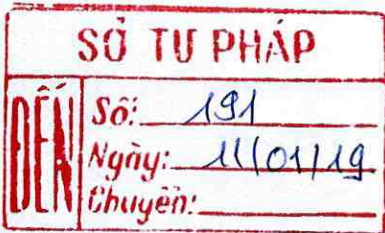 SỞ TƯ PHÁP
ĐẾN
Số: 191
Ngày: 11/01/19
Chuyển: